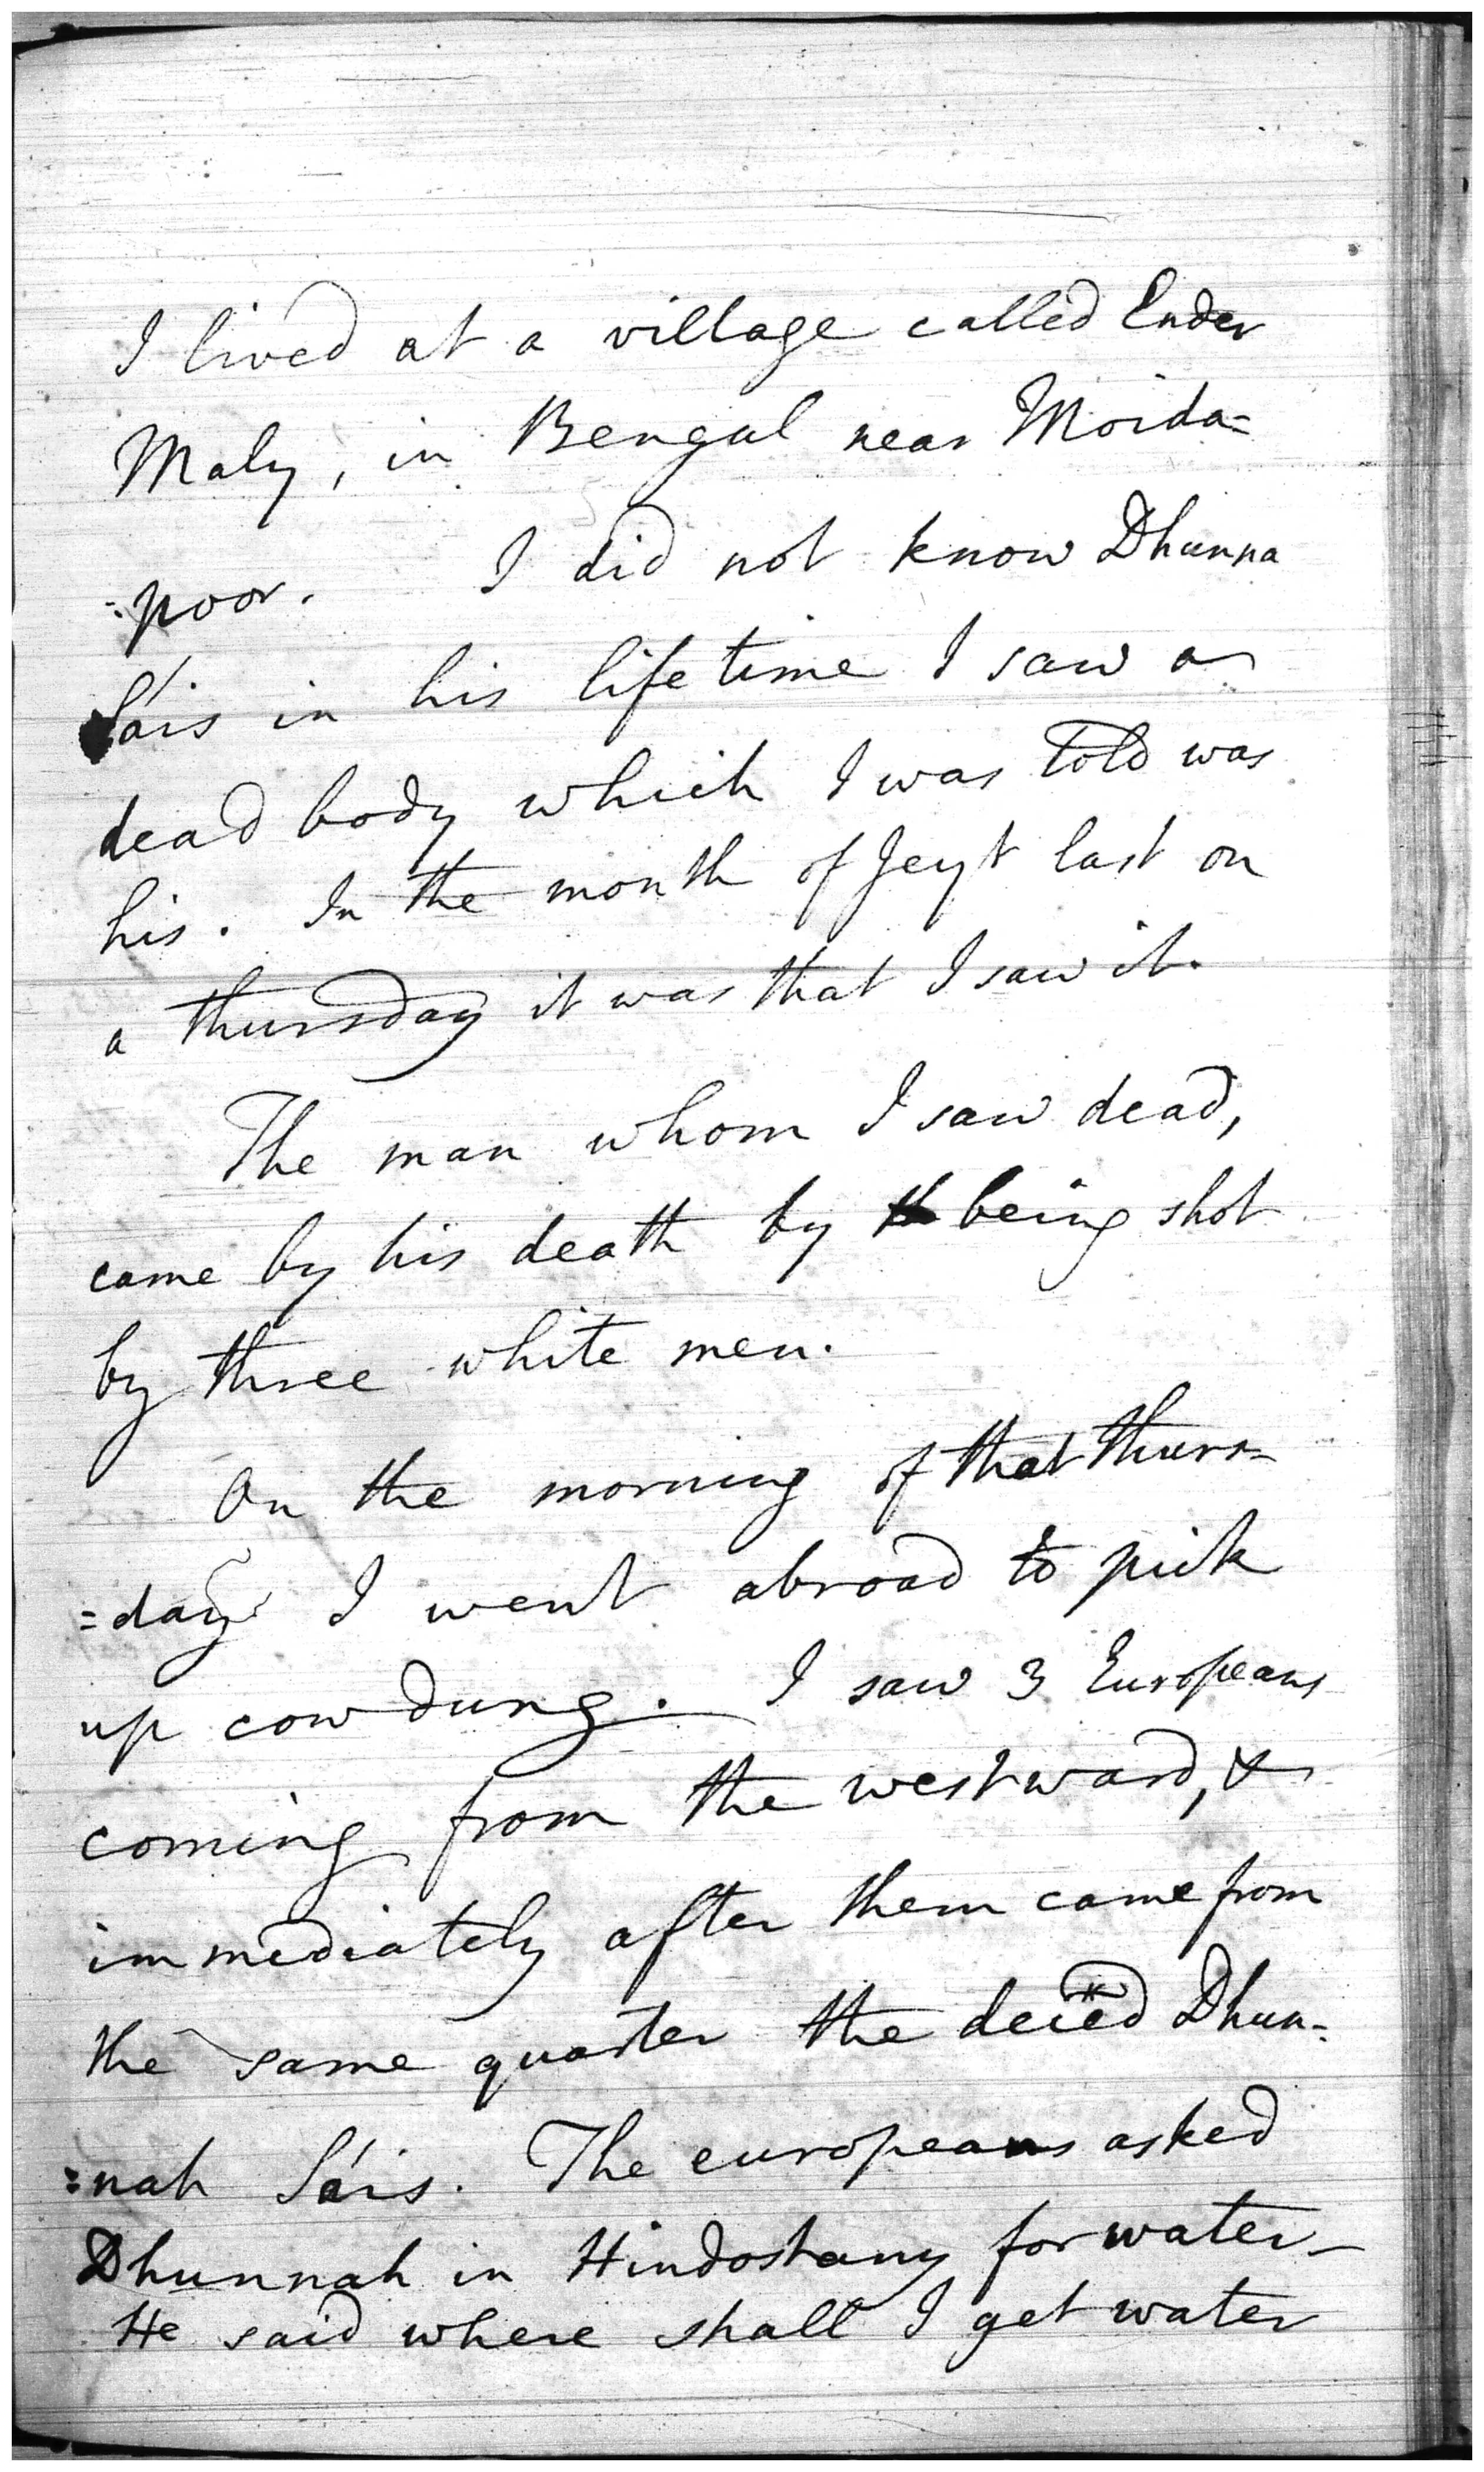 I lived at a village called Ender
Maly, in Bengal near Moida=
=poor. I did not know Dhunna
Sáis in his life time I saw a
dead body which I was told was
his. In the month of Jeyt last on
a thursday it was that I saw it.
The man whom I saw dead,
came by his death by being shot
by three white men.
On the morning of that thurs=
=day I went abroad to pick
up cow dung. I saw 3 Europeans
coming from the westward, &
immediately after them came from
the same quarter the deced Dhun=
=nah Sáis. The europeans asked
Dhunnah in Hindostany for water—
He said where shall I get water